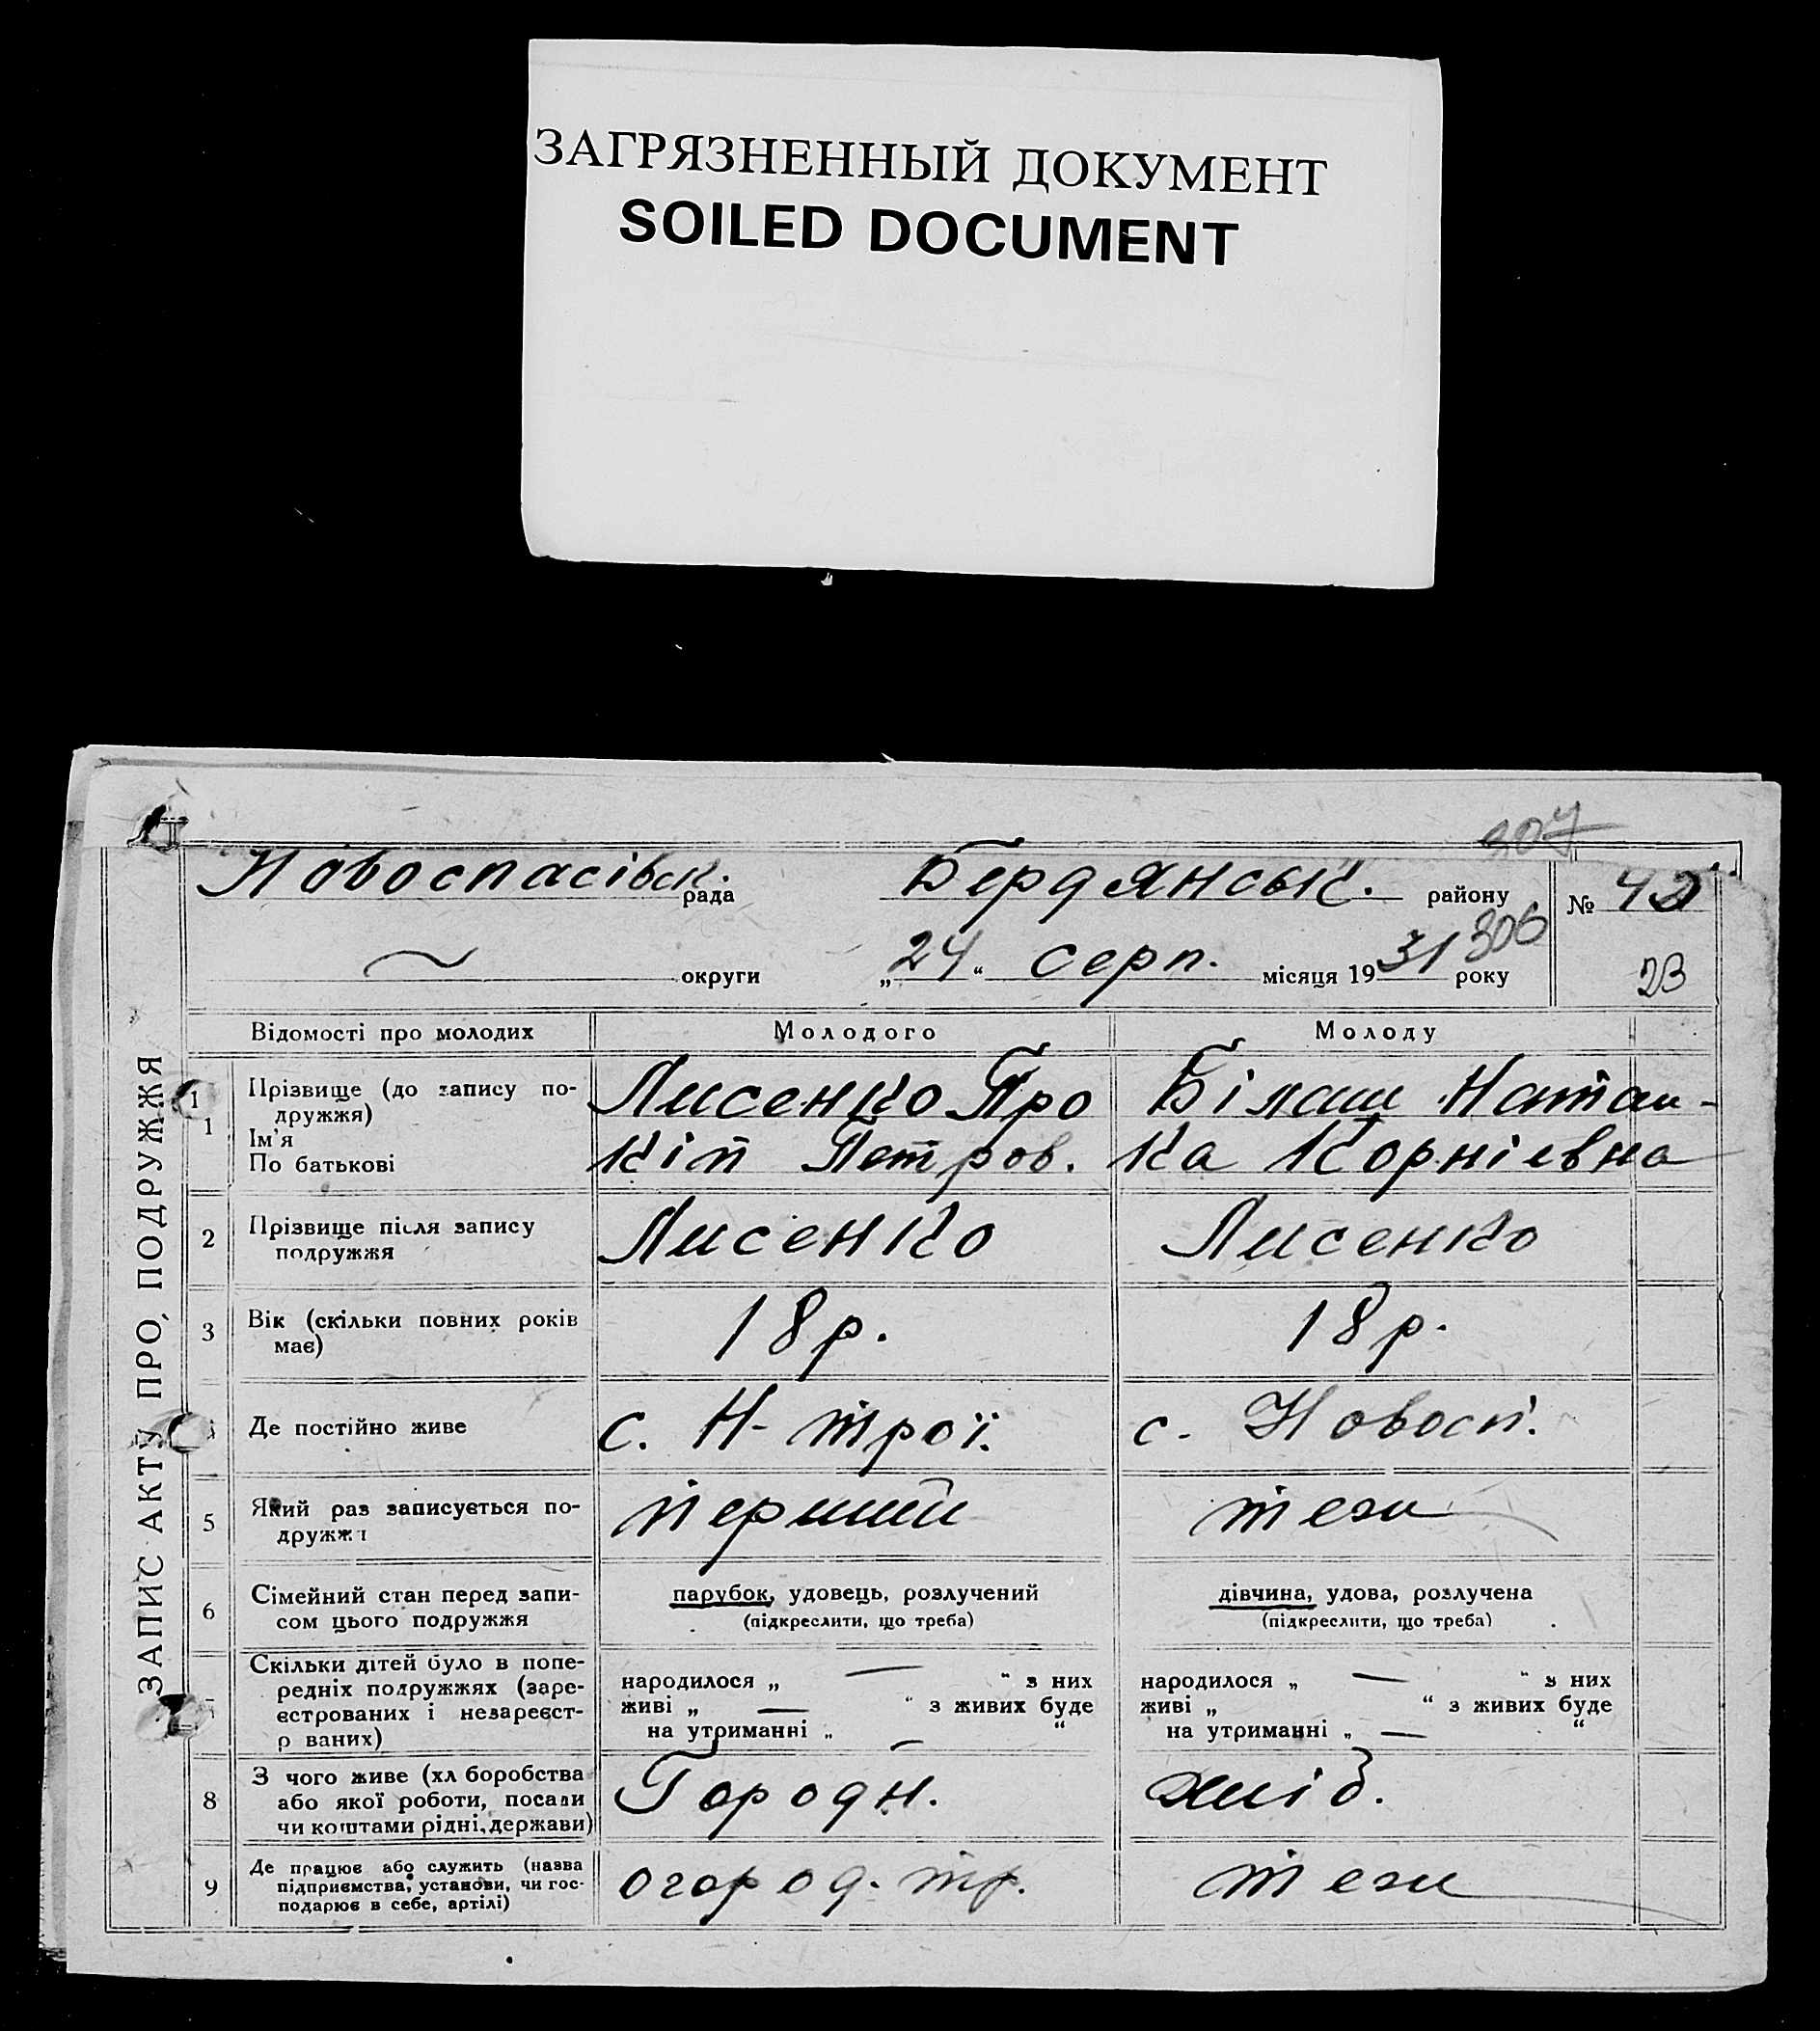 ЗАГРЯЗНЕННЫЙ ДОКУМЕНТ
SOILED DOCUMENT
307
Новоспасівск. рада Бердянськ. району № 42
306
округи „24“ серп. місяця 1931 року
23
ЗАПИС АКТУ ПРО ПОДРУЖЖЯ
Відомості про молодих Молодого Молоду
1
1 Прізвище (до запису по-
дружжя)
Ім'я
По батькові
Лисенко Про
кіп Петров.
Білаш Наташ-
ка Корніевна
2 Прізвище після запису
подружжя
Лисенко Лисенко
3 Вік (скільки повних років
має)
18 р. 18 р.
Де постійно живе с. Н-трої. с. Новосп.
5 Який раз записується по-
дружжя
перший теж
6 Сімейний стан перед запи-
сом цього подружжя
парубок, удовець, розлучений
(підкреслити, що треба)
дівчина, удова, розлучена
(підкреслити, що треба)
Скільки дітей було в попе-
редніх подружжях (заре-
єстрованих і незареєст-
р ваних)
народилося „ — “ з них
живі „ — “ з живих буде
на утриманні „ — “
народилося „ — “ з них
живі „ “ з живих буде
на утриманні „ — “
8 З чого живе (хл боробства
або якої роботи, посади
чи коштами рідні, держави)
Городн. хлід.
9 Де працює або служить (назва
підприємства, установи, чи гос-
подарює в себе, артілі)
огород. тр. теж